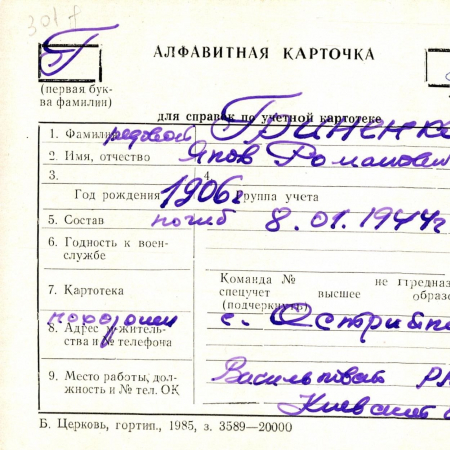 301 г
Г
АЛФАВИТНАЯ КАРТОЧКА
(первая бук-
ва фамилии)
для справок по учетной картотеке
1. Фамилия рядовой Гриненко
2. Имя, отчество Яков Романович
3. 4
Год рождения 1906г Группа учета
5. Состав погиб 8.01.1944г
6. Годность к воен-
службе
7. Картотека
Команда № не предназ
спецучет высшее образо
(подчеркнуть)
похоронен с.
8. Адрес и житель-
ства и № телефона
9. Место работы, дол-
жность и № тел. ОК
Киевской
Б. Церковь, гортип., 1985, з. 3589—20000